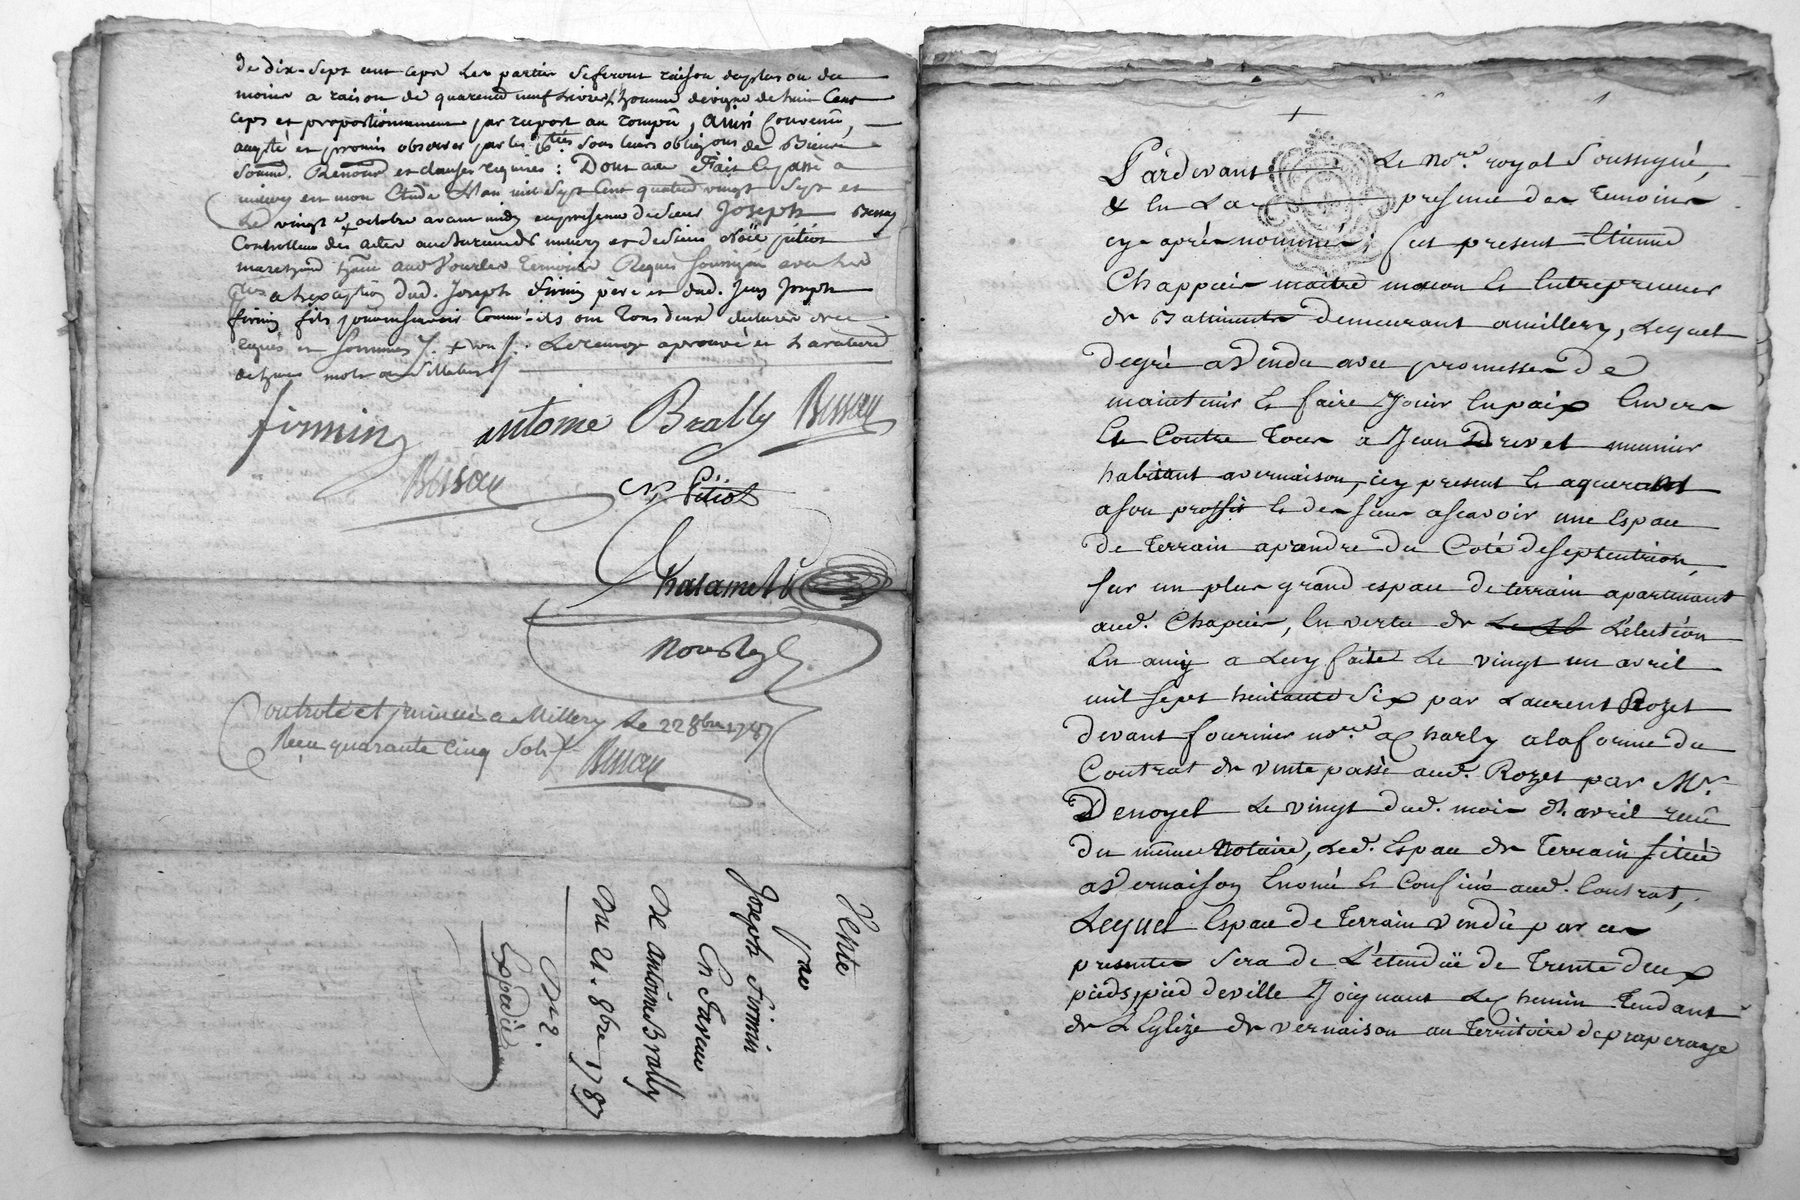 de dix-sept cent ceps les parties se feront raison du plus ou du
moins a raison de quarente neuf Livres L'homme de vigne de huit Cent
ceps et proportionnement par raport au rompû, Ainsi Convenu,
accepté et promis observer par les pties sous leurs obligaons de Biens
soumd. Renond. et clauses requises : Dont acte Fait et passé a
millery en mon Etude L'an mil Sept Cent quatre vingt Sept et
Le vingt + octobre avant midy en presence de sieur Joseph Bessay
Controlleur des actes aud. millery et de sieur Noël pitiot
marchand aud Vourles Temoins Requis soussignés avec les
a l'exception dud. Joseph firmin père et dud. Jean Joseph
firmin fils pour ne sçavoir comme ils ont Tous deux declarés de ce
enquis et sommés /. + un /. Le renvoy aprouvé et La rature
de mots
firmin antoine Brally Bessay
Bessay N. Pitiot
Chalamel
notre Royal
Controlé et insinué a Millery Le 22 8bre 1787
Reçu quarante Cinq Sols /. Bessay
Vente
par
Joseph firmin
En faveur
De antoine Brally
Du 21. 8bre 1787
Nº 2.
Expediée
+
1
Pardevant Le nore. royal Soussigné,
& En La presence des Temoins
cy-après nommés, fut present Etienne
Chappuis maitre masson & Entrepreneur
de Batiments demeurant a millery, Lequel
degré a Vendu avec promesse de
maintenir & faire Jouir En paix Envers
Et Contre Tous a Jean Drevet munier
habitant a vernaison, icy present & aquerant
a son proffit & des siens a scavoir une Espace
de Terrain a prandre du Coté de septentrion,
sur un plus grand espace de terrain apartenant
aud. Chapuis, En vertu de L'election
En amy a Luy faite Le vingt un avril
mil sept huitante Six par Laurent Rozet
devant fournier nore. a Charly a la forme du
Contrat de vente passé aud. Rozet par Mr.
Denoyel Le vingt dud. mois d'avril reçu
du même Notaire, Led. Espace de Terrain Situé
a Vernaison Enoncé & Confiné aud. Contrat,
Lequel Espace de Terrain vendu par ces
presentes Sera de L'étenduë de Trente deux
pieds, pied de ville Joignant Le Chemin Tendant
de L'Eglize de vernaison au Territoire de praperaye